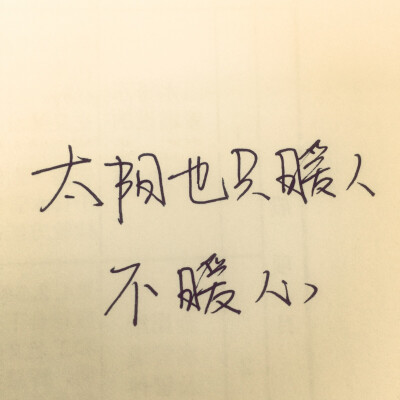 太阳也只暖人
不暖心